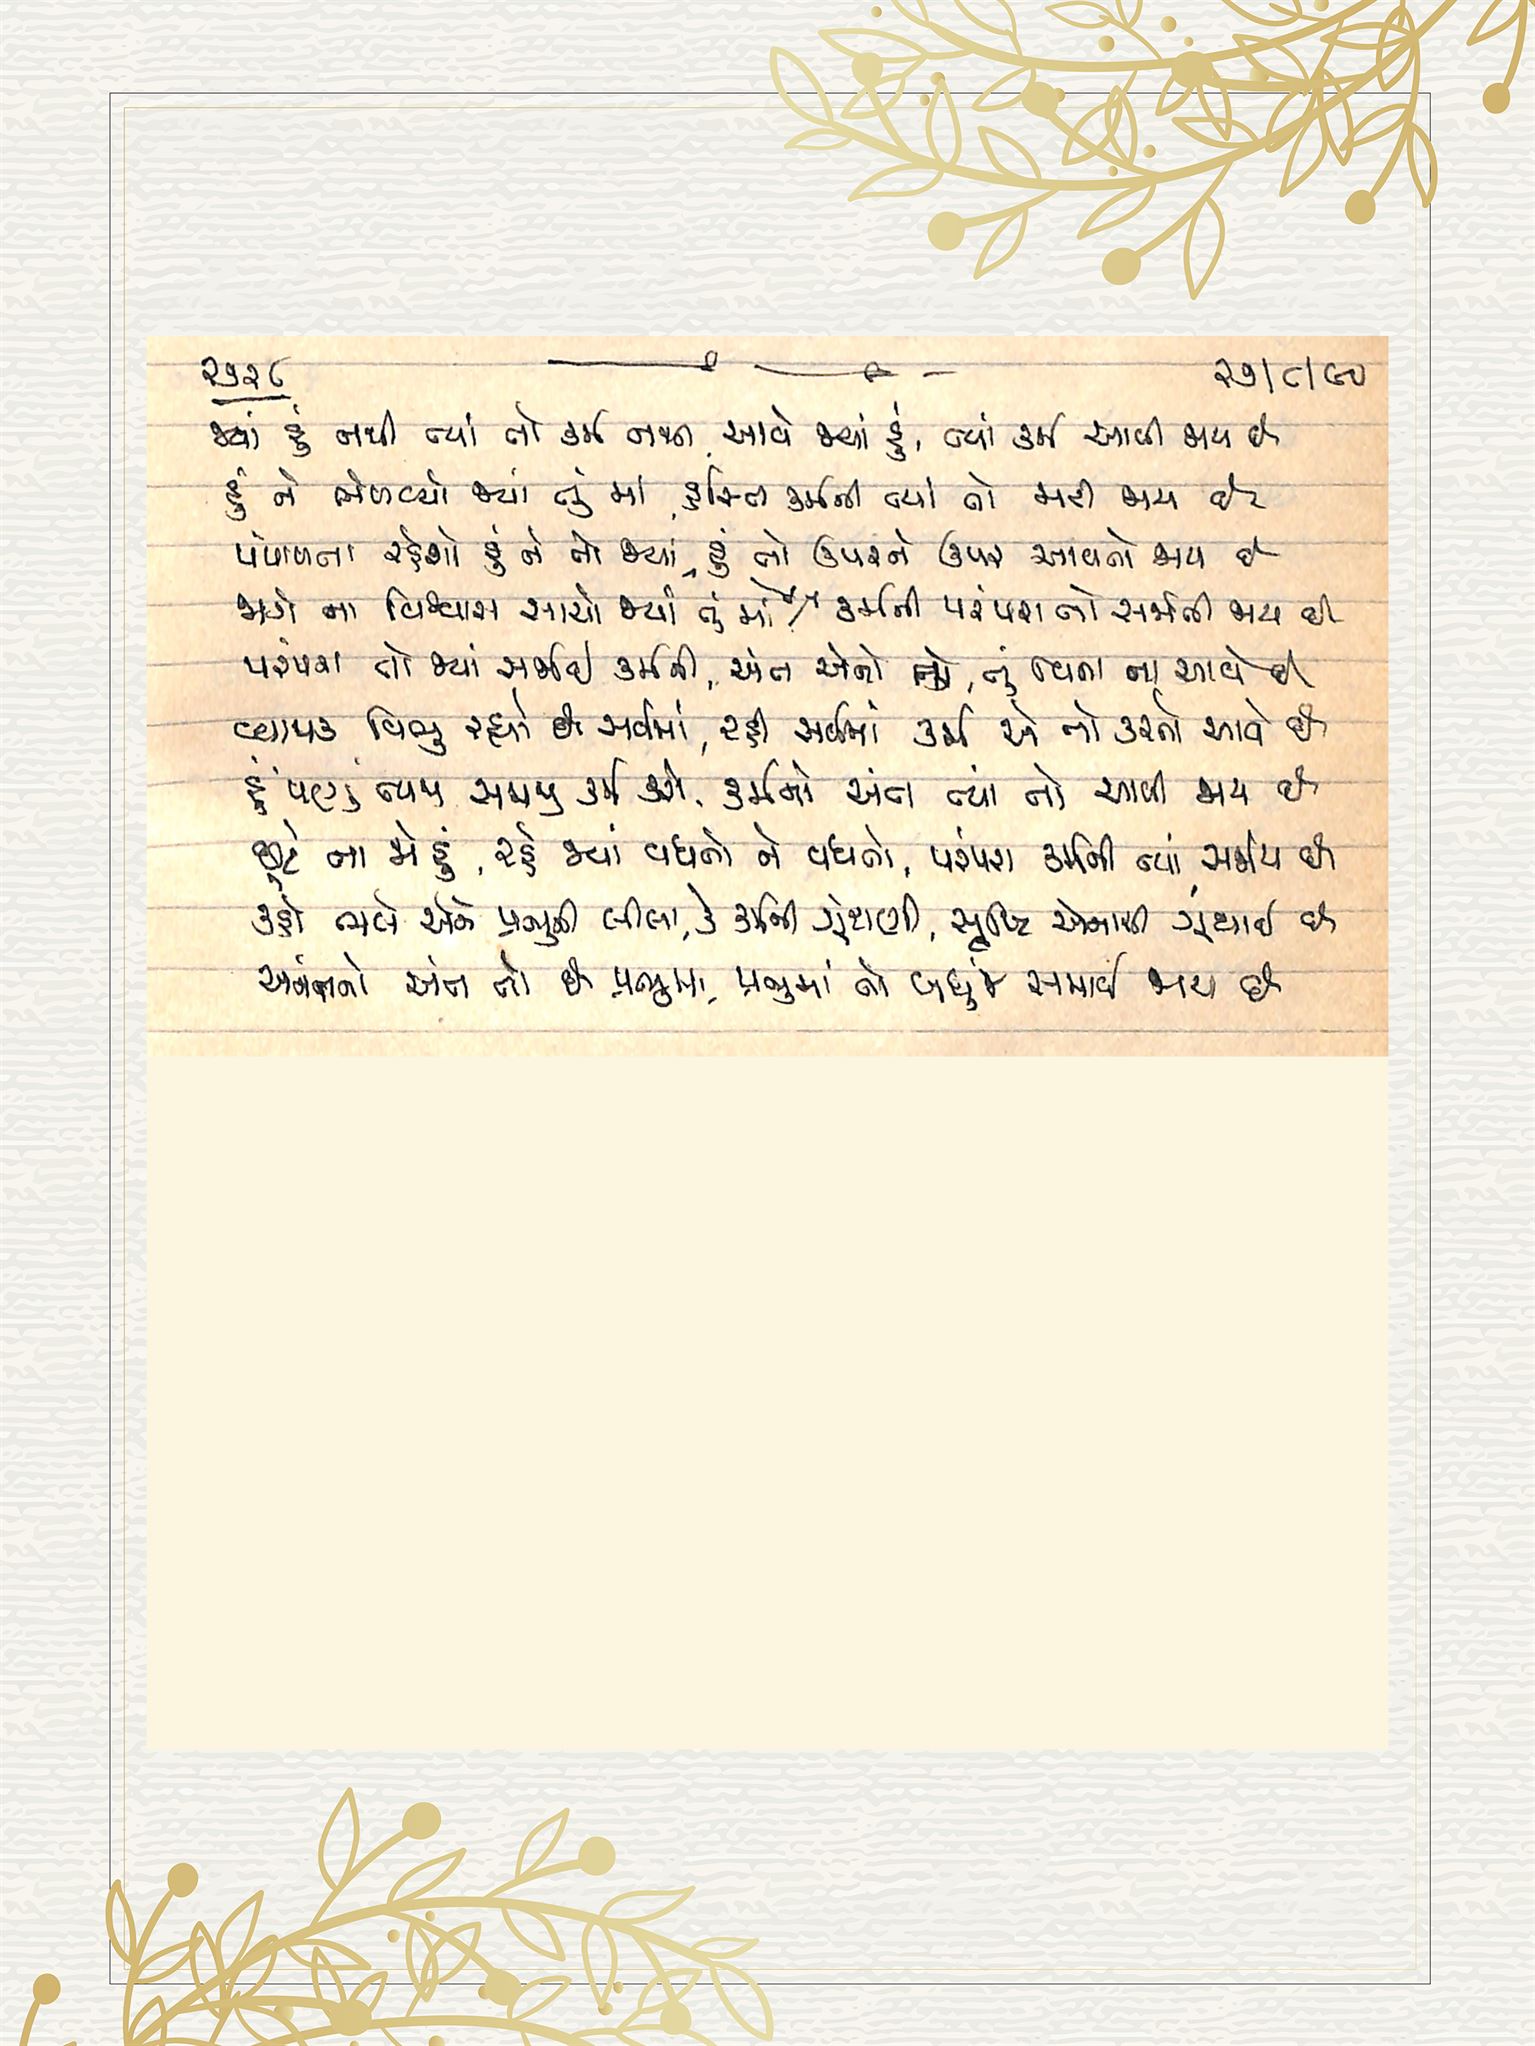 ૨૭૨૮ ૨૭/૮/૯૦
જ્યાં હું નથી ત્યાં તો કર્મ નથી, આવે જ્યાં હું, ત્યાં કર્મ આવી જાય છે
હું ને ભેળવ્યો જ્યાં તું માં, હસ્તિ કર્મની ત્યાં તો મટી જાય છે
પંપાળતા રહેશો હું ને તો જ્યાં, હું તો ઉપરને ઉપર આવતો જાય છે
જાગે ના વિશ્વાસ સાચો જ્યાં તું માં, કર્મની પરંપરા તો સર્જાતી જાય છે
પરંપરા તો જ્યાં સર્જાઈ કર્મની, અંત એનો તો, તું વિના ના આવે છે
વ્યાપક વિભુ રહ્યો છે સર્વમાં, રહી સર્વમાં કર્મ એ તો કરતો આવે છે
હું પણું ત્યજી સમજુ કર્મ કરો, કર્મનો અંત ત્યાં તો આવી જાય છે
છૂટે ના જો હું, રહે જ્યાં વધતો ને વધતો, પરંપરા કર્મની ત્યાં સર્જાય છે
કહો ભલે એને પ્રભુની લીલા, કે કર્મની ગૂંથણી, સૃષ્ટિ એનાથી ગૂંથાઈ છે
અનંતનો અંત તો છે પ્રભુમાં, પ્રભુમાં તો બધું સમાઈ જાય છે